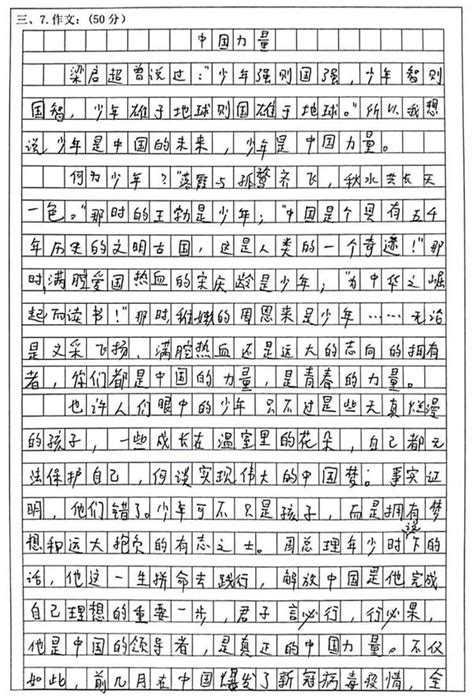 三、7.作文：(50分)
中国力量
梁启超曾说过："少年强则国强，少年智则
国智，少年雄于地球则国雄于地球。"所以我想
说，少年是中国的未来，少年是中国力量。
何为少年？"落霞与孤鹜齐飞，秋水共长天
一色。"那时的王勃是少年；"中国是个具有五千
年历史的文明古国，这是人类的一个奇迹！"那
时，满腔爱国热血的宋庆龄是少年；"为中华之崛
起而读书！"那时稚嫩的周恩来是少年……无论
是文采飞扬、满腔热血还是远大的志向的拥有
者，你们都是中国的力量，是青春的力量。
也许人们眼中的少年只不过是些天真烂漫
的孩子，一些成长在温室里的花朵，自己都无
法保护自己，何谈实现伟大的中国梦。事实证
明，他们错了。少年可不只是孩子，而是拥有梦
想和远大抱负的有志之士。周总理年少时说下的
话，他这一生拼命去践行，解放中国是他完成
自己理想的重要一步，君子言必行，行必果，
他是中国的领导者，是真正的中国力量。不仅
如此，前几月在中国爆发了新冠病毒疫情，全